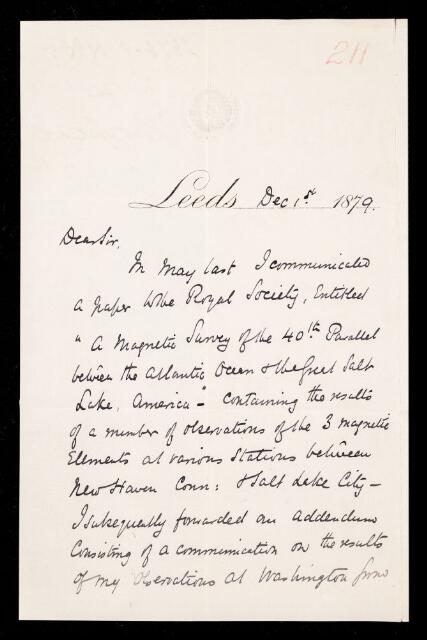 211
Leeds Dec 1st 1879.
Dear Sir,
In May last I communicated
a paper to the Royal Society, Entitled
"A Magnetic Survey of the 40th Parallel
between the Atlantic Ocean & the Great Salt
Lake, America" - containing the results
of a number of observations of the 3 magnetic
Elements at various Stations between
New Haven Conn: & Salt Lake City -
I subsequently forwarded an addendum
Consisting of a communication on the results
of my observations at Washington from